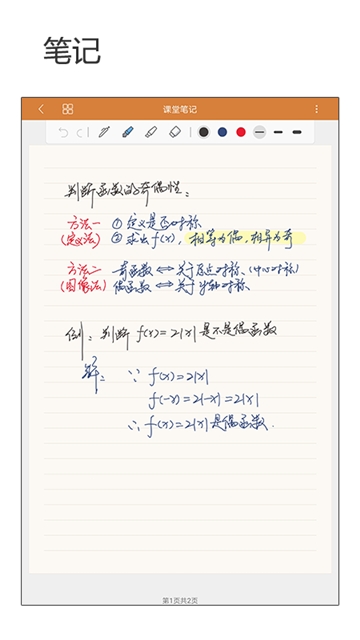 笔记
课堂笔记
判断函数的奇偶性：
方法一 ① 定义是否对称
(定义法) ② 求出 f(x)，相等为偶，相异为奇
方法二 奇函数 ⇔ 关于原点对称 (中心对称)
(图像法) 偶函数 ⇔ 关于y轴对称
例：判断 f(x)=2|x| 是不是偶函数
解：∵ f(x)=2|x|
f(-x)=2|-x|=2|x|
∴ f(x)=2|x| 是偶函数.
第1页共2页